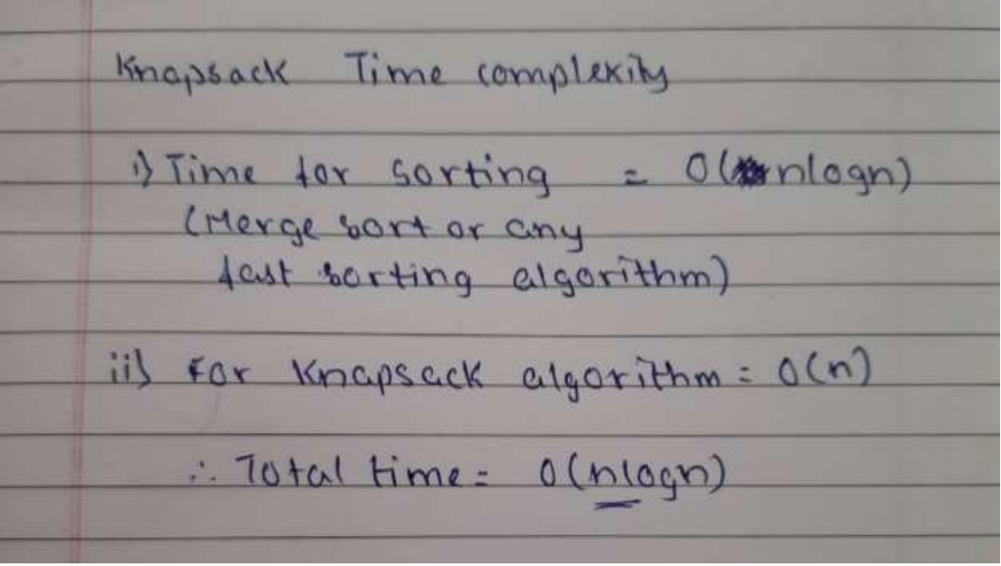 Knapsack Time complexity
i) Time for sorting = O(nlogn)
(Merge sort or any
fast sorting algorithm)
ii) For Knapsack algorithm = O(n)
∴ Total time = O(nlogn)